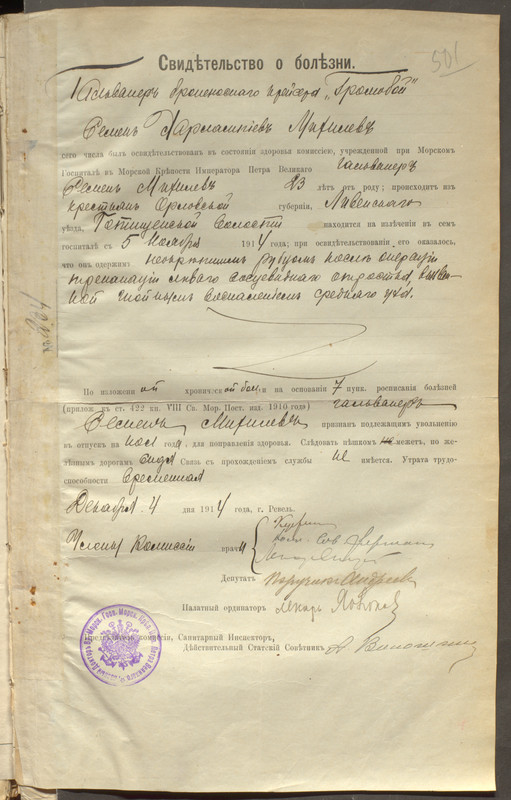 501
Свидѣтельство о болѣзни.
Гальванеръ броненоснаго крейсера „Громобой"
Семенъ Михилевъ
сего числа былъ освидѣтельствованъ въ состояніи здоровья комиссіею, учрежденной при Морскомъ
Госпиталѣ въ Морской Крѣпости Императора Петра Великаго гальванеръ
Семенъ Михилевъ 23 лѣтъ отъ роду; происходитъ изъ
крестьянъ Орловской губерніи, Ливенскаго
уѣзда, волости находится на излѣченіи въ семъ
госпиталѣ съ 5 Ноября 1914 года; при освидѣтельствованіи его оказалось,
что онъ одержимъ неокрѣпшимъ рубцомъ послѣ операціи
трепанаціи лѣваго сосцевиднаго отростка,
гнойнымъ воспаленіемъ средняго уха.
По изложенн ой хроническ ой бол и на основаніи 7 пунк. росписанія болѣзней
(прилож. къ ст. 422 кн. VIII Св. Мор. Пост. изд. 1910 года) гальванеръ
Семенъ Михилевъ признанъ подлежащимъ увольненію
въ отпускъ на года, для поправленія здоровья. Слѣдовать пѣшкомъ можетъ, по же-
лѣзнымъ дорогамъ сидя Связь съ прохожденіемъ службы не имѣется. Утрата трудо-
способности временная
Декабря 4 дня 1914 года, г. Ревель.
Члены Комиссіи врачи
Депутатъ Поручикъ Андреевъ
Палатный ординаторъ лекарь
Предсѣдатель комиссіи, Санитарный Инспекторъ,
Дѣйствительный Статскій Совѣтникъ